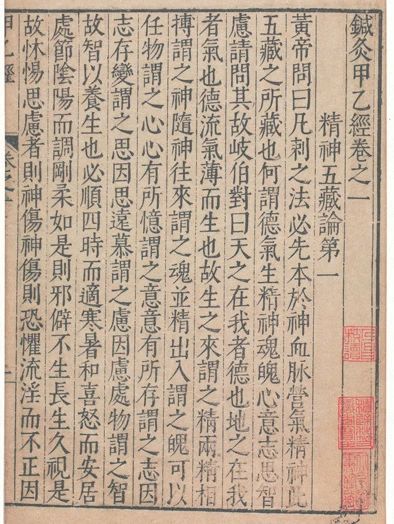 鍼灸甲乙經卷之一
精神五藏論第一
黃帝問曰凡刺之法必先本於神血脉營氣精神此
五藏之所藏也何謂德氣生精神魂魄心意志思智
慮請問其故岐伯對曰天之在我者德也地之在我
者氣也德流氣薄而生也故生之來謂之精兩精相
搏謂之神隨神往來謂之魂並精出入謂之魄可以
任物謂之心心有所憶謂之意意有所存謂之志因
志存變謂之思因思遠慕謂之慮因慮處物謂之智
故智以養生也必順四時而適寒暑和喜怒而安居
處節陰陽而調剛柔如是則邪僻不生長生久視是
故怵惕思慮者則神傷神傷則恐懼流淫而不正因
甲乙經